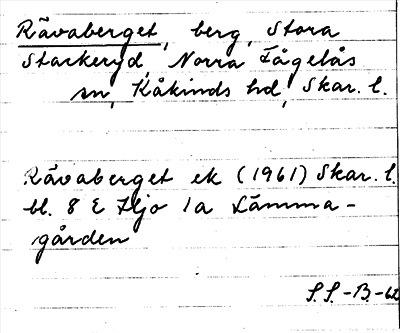 Rävaberget, berg, Stora
Stackeryd, Norra Fågelås
sn, Kåkinds hd, Skar. l.
Rävaberget ek (1961) Skar. l.
bl. 8 E Hjo 1a Lämma-
gården
S.S.-B.-62